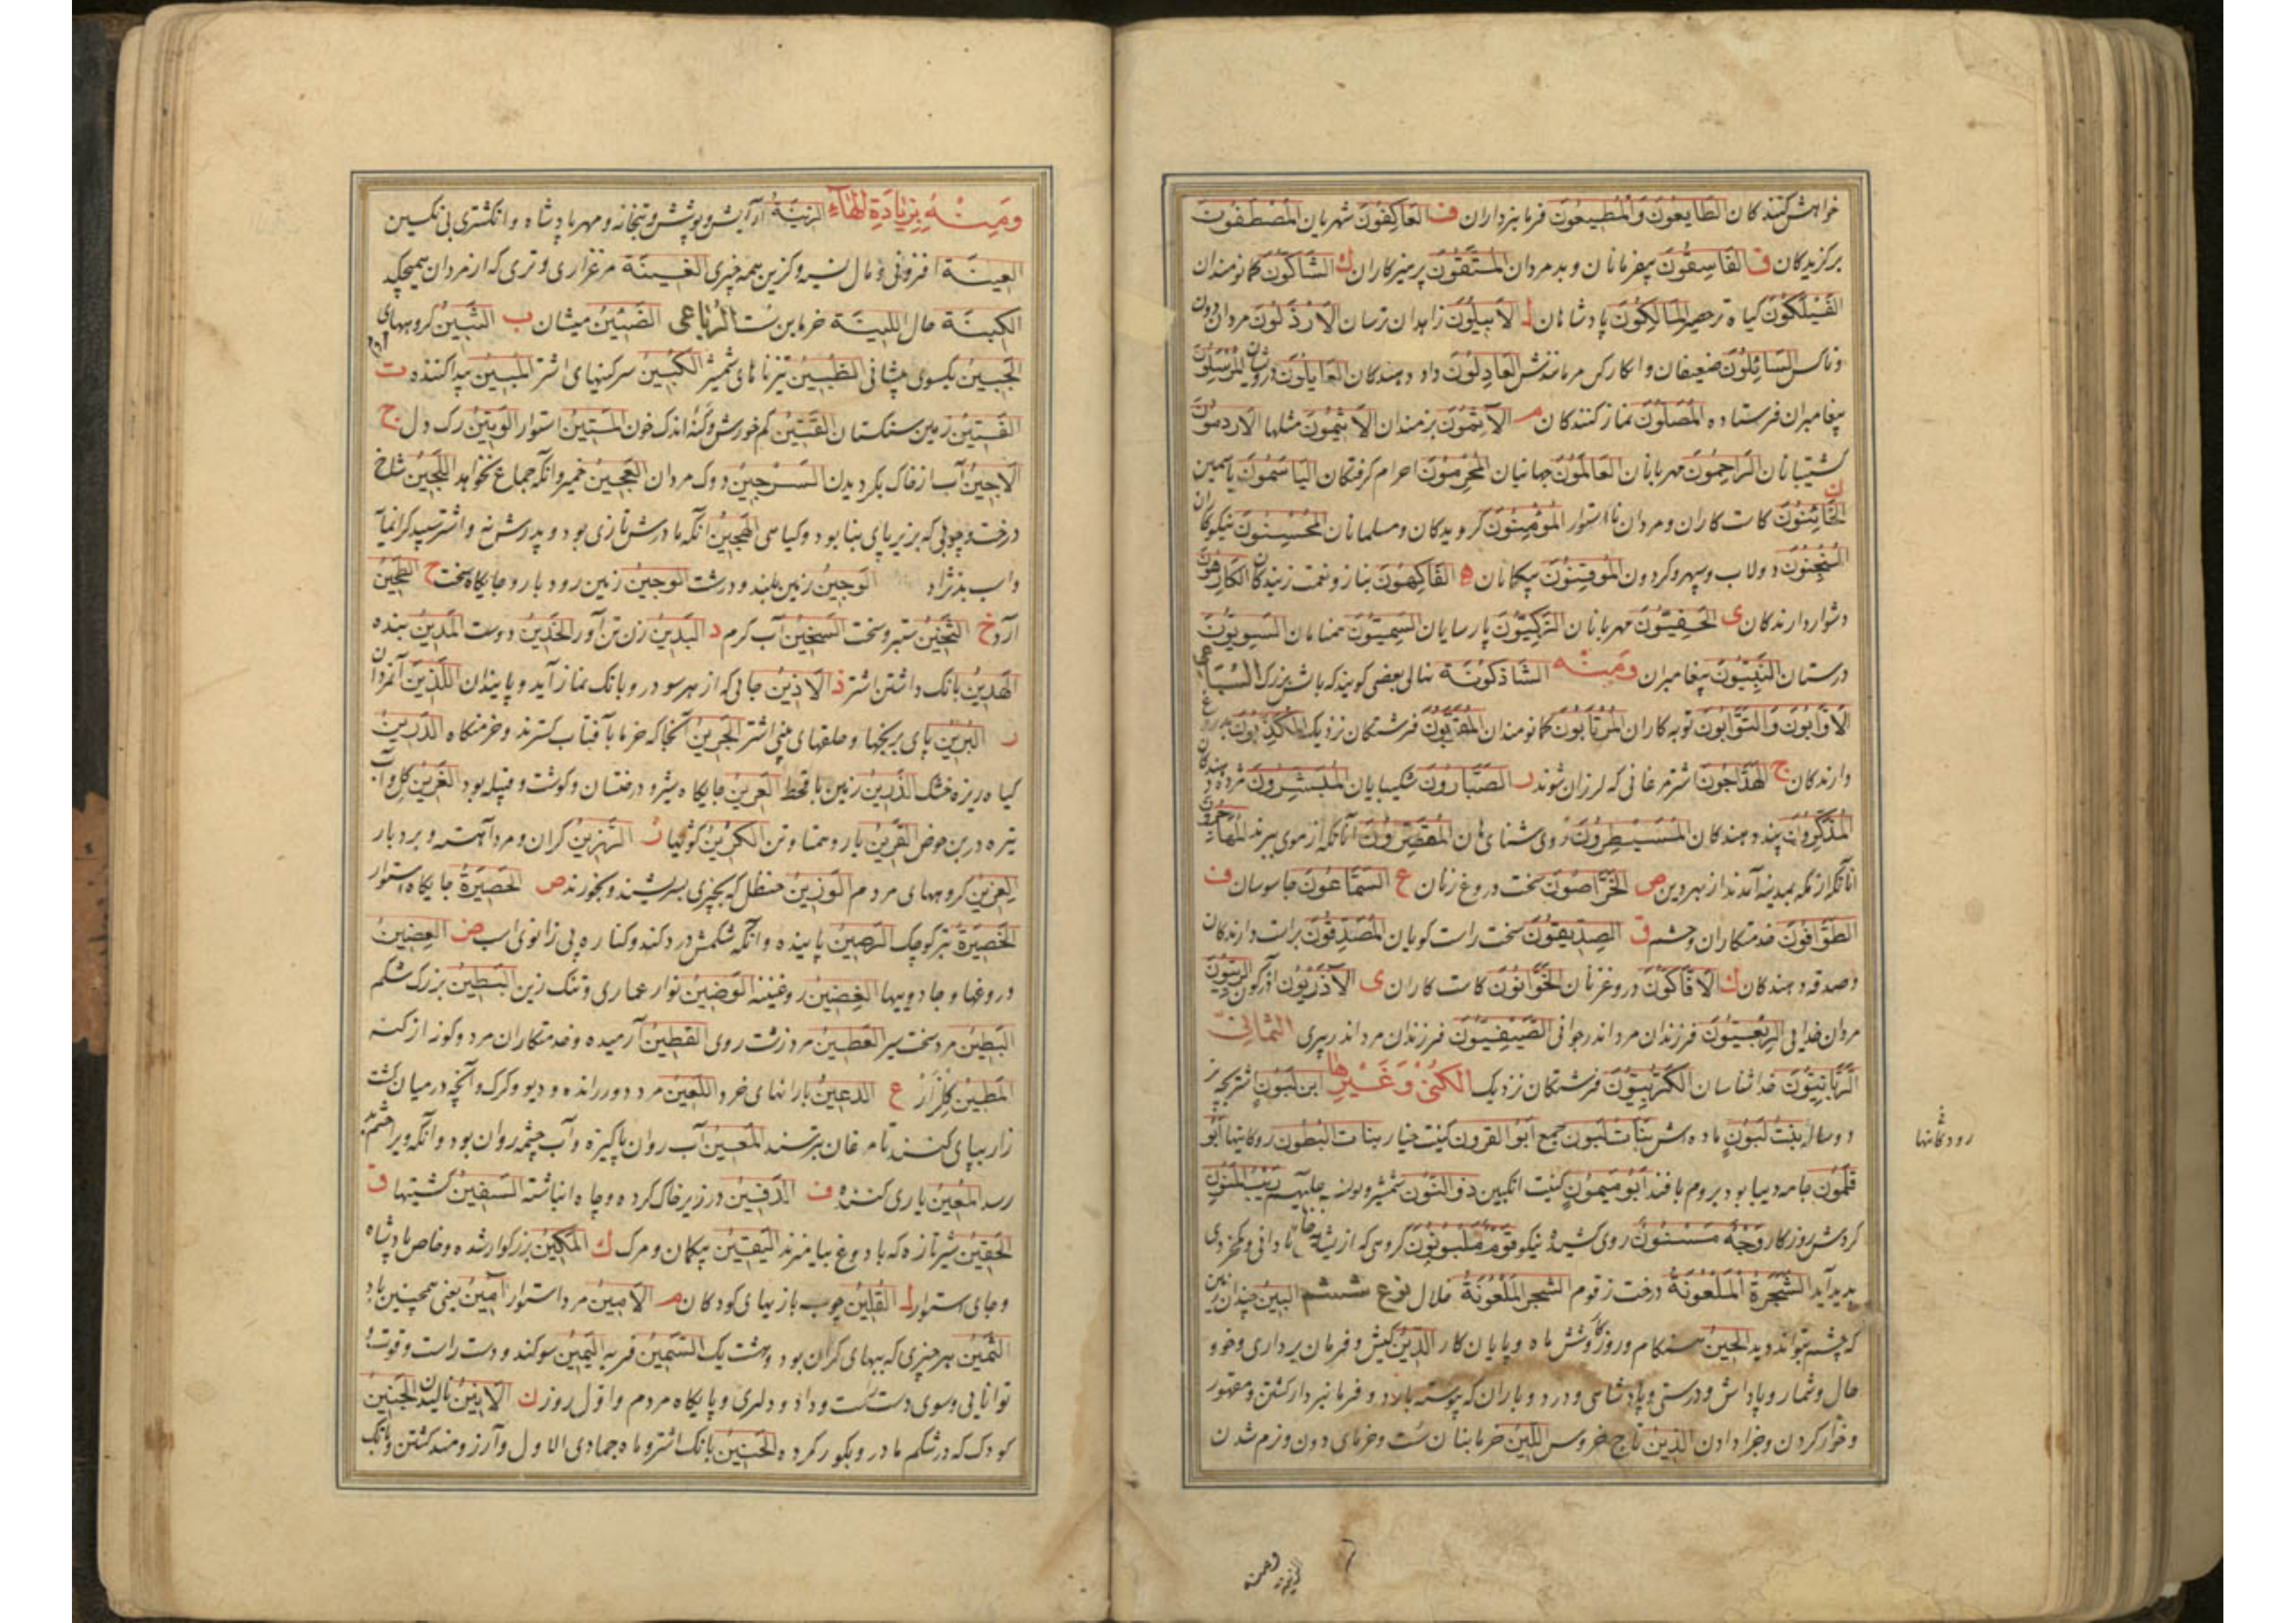 خواهش کنندکان الطَّایِعُونَ وَالْمُطِیعُونَ فرمانبرداران ف العَاکِفُونَ شهریان المُصْطَفَوْنَ
برکزیدکان ق الفَاسِقُونَ بیفرمانان و بدمردان المُتَّقُونَ پرهیزکاران ك الشَّاکُّونَ کمانومندان
المَالِکُونَ پادشاهان ل الأَبِیلُونَ زاهدان ترسان الأَرْذَلُونَ مردان دون
وناکس السَّائِلُونَ ضعیفان العَادِلُونَ داد دهندکان العَایِلُونَ درویشان المُرْسَلُونَ
پیغامبران فرستاده المُصَلُّونَ نماز کنندکان م الآثِمُونَ بزمندان
کشتیبانان الرَّاحِمُونَ مهربانان العَالَمُونَ جهانیان المُحْرِمُونَ احرام کرفتکان الیَاسَمُونَ یاسمین
ن الخَائِنُونَ کاست کاران و مردان نااستوار المُؤْمِنُونَ کرویدکان و مسلمانان المُحْسِنُونَ نیکوکاران
المَنْجَنُونَ دولاب و سپهر و کردون المُوقِنُونَ بیکمانان ه الفَاکِهُونَ بناز و نعمت زیندکان الکَارِهُونَ
دشوار دارندکان ی الحَفِیُّونَ مهربانان الزَّکِیُّونَ پارسایان السَّمِیُّونَ همنامان السَّوِیُّونَ
درستان النَّبِیُّونَ پیغامبران وَمِنْهُ الشَّاذَکُونَة نهالی بعضی کویند که بالش بزرک
الأَوَّابُونَ وَالتَّوَّابُونَ توبه کاران المُرْتَابُونَ کمانومندان المُقَرَّبُونَ فرشتکان نزدیک المُکَذِّبُونَ
دارندکان ج الهَدَّاجُونَ شترمرغانی که لرزان شوند ر الصَّبَّارُونَ شکیبایان المُبَشِّرُونَ مژده دهندکان
المُذَکِّرُونَ پند دهندکان المُقَصِّرُونَ آنانکه از موی ببرند
آنانکه از مکه بمدینه آمدند از بهر دین ص الخَرَّاصُونَ سخت دروغ زنان ع السَّمَّاعُونَ جاسوسان ف
الطَّوَّافُونَ خدمتکاران و حشم ق الصِّدِّیقُونَ سخت راست کویان المُصَدِّقُونَ براست دارندکان
و صدقه دهندکان ك الأَفَّاکُونَ دروغ زنان الخَوَّانُونَ کاست کاران ی الآذَرْیُونَ آذرکون الرِّبِّیُّونَ
مردان خدایی الرِّبْعِیُّونَ فرزندان مرد اندر جوانی الصَّیْفِیُّونَ فرزندان مرد اندر پیری الثمانیّ
الرَّبَّانِیُّونَ خداشناسان الکَرُوبِیُّونَ فرشتکان نزدیک الکُنٰی وَغَیْرِهَا ابن لَبُونٍ اشتر بچه نر
دو ساله بِنْتُ لَبُونٍ ماده اش بَنَاتُ لَبُونٍ جمع أَبُو القُرُون کنیت خیار بنات البُطُون رودکانیها أَبُو
قَلَمُونَ جامه دیبا بود بروم بافند أَبُو مَیْمُونٍ کنیت انکبین ذو النُّون شمشیر و یونس علیه السلم رَیْبُ المَنُونِ
کردش روزکار وَجْهٌ مَسْنُونٌ روی کشیده نیکو قَوْمٌ مَلْبُونُونَ کروهی که از شیر نادانی و بیخردی
پدید آید الشَّجَرَةُ المَلْعُونَةُ درخت زقوم نوع ششم البِینُ چندان زمین
که چشم بتواند دید الحِینُ هنکام و روزکار و شش ماه و پایان کار الدِّینُ کیش و فرمان برداری و خو و
حال و شمار و پاداش و درستی و پادشاهی و درد و باران که پیوسته بارد و فرمانبردار کشتن و مقهور
و خوار کردن و جزا دادن الزَّیْنُ تاج خروس اللِّینُ خرمابنان ست و خرمای دون و نرم شدن
رودکانیها
وَمِنْهُ بِزِیَادَةِ الْهَاء الزِّینَةُ آرایش و پوشش و بتخانه و مهر پادشاه و انکشتری بی نکین
العِینَة افزونی و مال نسیه و کزین همه چیزی الغِینَة مرغزاری و تری که از مردان همیچکد
الکِینَة حال اللِّینَة خرمابن ست الرُّبَاعِی الضَّئِینُ میشان ب الثُّبِینُ کروههای
الجَبِینُ یکسوی پیشانی الظُّبِینُ تیزناهای شمشیر الکُبِینُ سرکینهای اشتر المُبِینُ پیدا کننده ت
الفَتِینُ زمین سنکستان القَتِینُ کم خورش و کنه اندک خون المَتِینُ استوار الوَتِینُ رک دل ج
السِّرْجِینُ العَجِینُ خمیر و آنکه جماع نخواهد اللَّجِینُ شاخ
درخت و چوبی که بزیر پای بنا بود و کیاهی الهَجِینُ آنکه مادرش تازی بود و پدرش نه و اشتر سپید کرانمایه
و اسب بدنژاد الوَجِینُ زمین بلند و درشت الوَجِینُ زمین رودبار و جایکاه سخت ح الطَّحِینُ
آرد خ الثَّخِینُ ستبر و سخت السَّخِینُ آب کرم د البَدِینُ زن تن آور الخَدِینُ دوست المَدِینُ بنده
الهَدِینُ بانک داشتن اشتر ذ الأَذِینُ جائی که از هر سو در و بانک نماز آید و پایندان اللَّذِینَ آنمردان
ر البُرِینُ پای برنجنها و حلقهای بینی اشتر الجَرِینُ آنجا که خرما بآفتاب کسترند و خرمنکاه الدَّرِینُ
کیاه ریزه خشک زمین با قحط العَرِینُ جایکاه شیر و درختان و کوشت و قبیله بود الغَرِینُ
تیره در بن حوض القَرِینُ یار و همتا و تن الکُرِینُ کویها ز الرَّزِینُ کران و مرد آهسته و بردبار
العِزِینُ کروههای مردم الوَزِینُ حنظل که بچیزی بسریشند و بخورند ص الحَصِیرَةُ جایکاه استوار
تبر کوچک الرَّصِینُ پاینده و آنکه شکمش درد کند و کناره پی زانوی اسب ض العِضِینُ
دروغها و جادوییها روغنینه الوَضِینُ نوار عماری و تنک زین البَطِینُ بزرک شکم
البَطِینُ مرد سخت سیر مرد زشت روی القَطِینُ آرمیده و خدمتکاران مرد و کوز از کنه
ع الدَّعِینُ بارانهای خرد اللَّعِینُ مرد دور رانده و دیو و کرک و آنچه در میان کشت
زار بپای کنند تا مرغان بترسند المَعِینُ آب روان پاکیزه و آب چشمه روان بود و آنکه ویرا چشم بد
رسد المُعِینُ یاری کننده ف الدَّفِینُ در زیر خاک کرده و چاه انباشته السَّفِینُ کشتیها ق
الحَقِینُ شیر تازه که با دوغ بیامیزند الیَقِینُ بیکمان و مرک ك المَکِینُ بزرکوار شده و خاص پادشاه
و جای استوار ل القُلِینُ چوب بازیهای کودکان م الأَمِینُ مرد استوار آمِینُ یعنی همچنین باد
الثَّمِینُ هر چیزی که ببهای کران بود و هشت یک السَّمِینُ فربه الیَمِینُ سوکند و دست راست و قوت و
توانایی و سوی دست راست و داد و دلیری و پایکاه مردم و اوّل روز ن الأَنِینُ نالیدن الجَنِینُ
کودک که در شکم مادر و بکور کرده الحَنِینُ بانک اشتر و ماه جمادی الاول و آرزومند کشتن و بانک